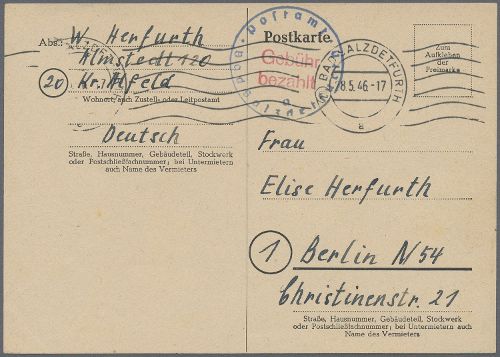 Abs.: W. Herfurth
Almstedt 120
(20) Kr. Alfeld
Wohnort, auch Zustell- oder Leitpostamt
Deutsch
Straße, Hausnummer, Gebäudeteil, Stockwerk
oder Postschließfachnummer; bei Untermietern
auch Name des Vermieters
Postamt
Gebühr
bezahlt
Postkarte
BAD SALZDETFURTH
18.5.46.-17
a
Zum
Aufkleben
der
Freimarke
Frau
Elise Herfurth
(1) Berlin N 54
Christinenstr. 21
Straße, Hausnummer, Gebäudeteil, Stockwerk
oder Postschließfachnummer; bei Untermietern auch
Name des Vermieters